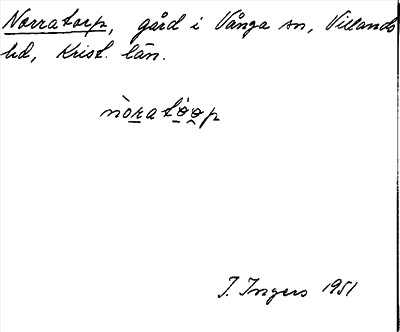 Norratorp, gård i Vånga sn, Villands
hd, Krist. län.
nòratȯop
I. Ingers 1951